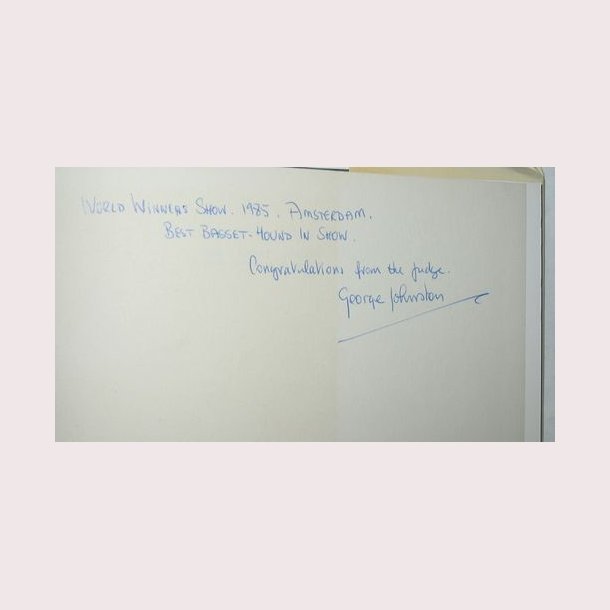 WORLD WINNERS SHOW. 1985. AMSTERDAM.
BEST BASSET-HOUND IN SHOW.
Congratulations from the judge.
George Johnston